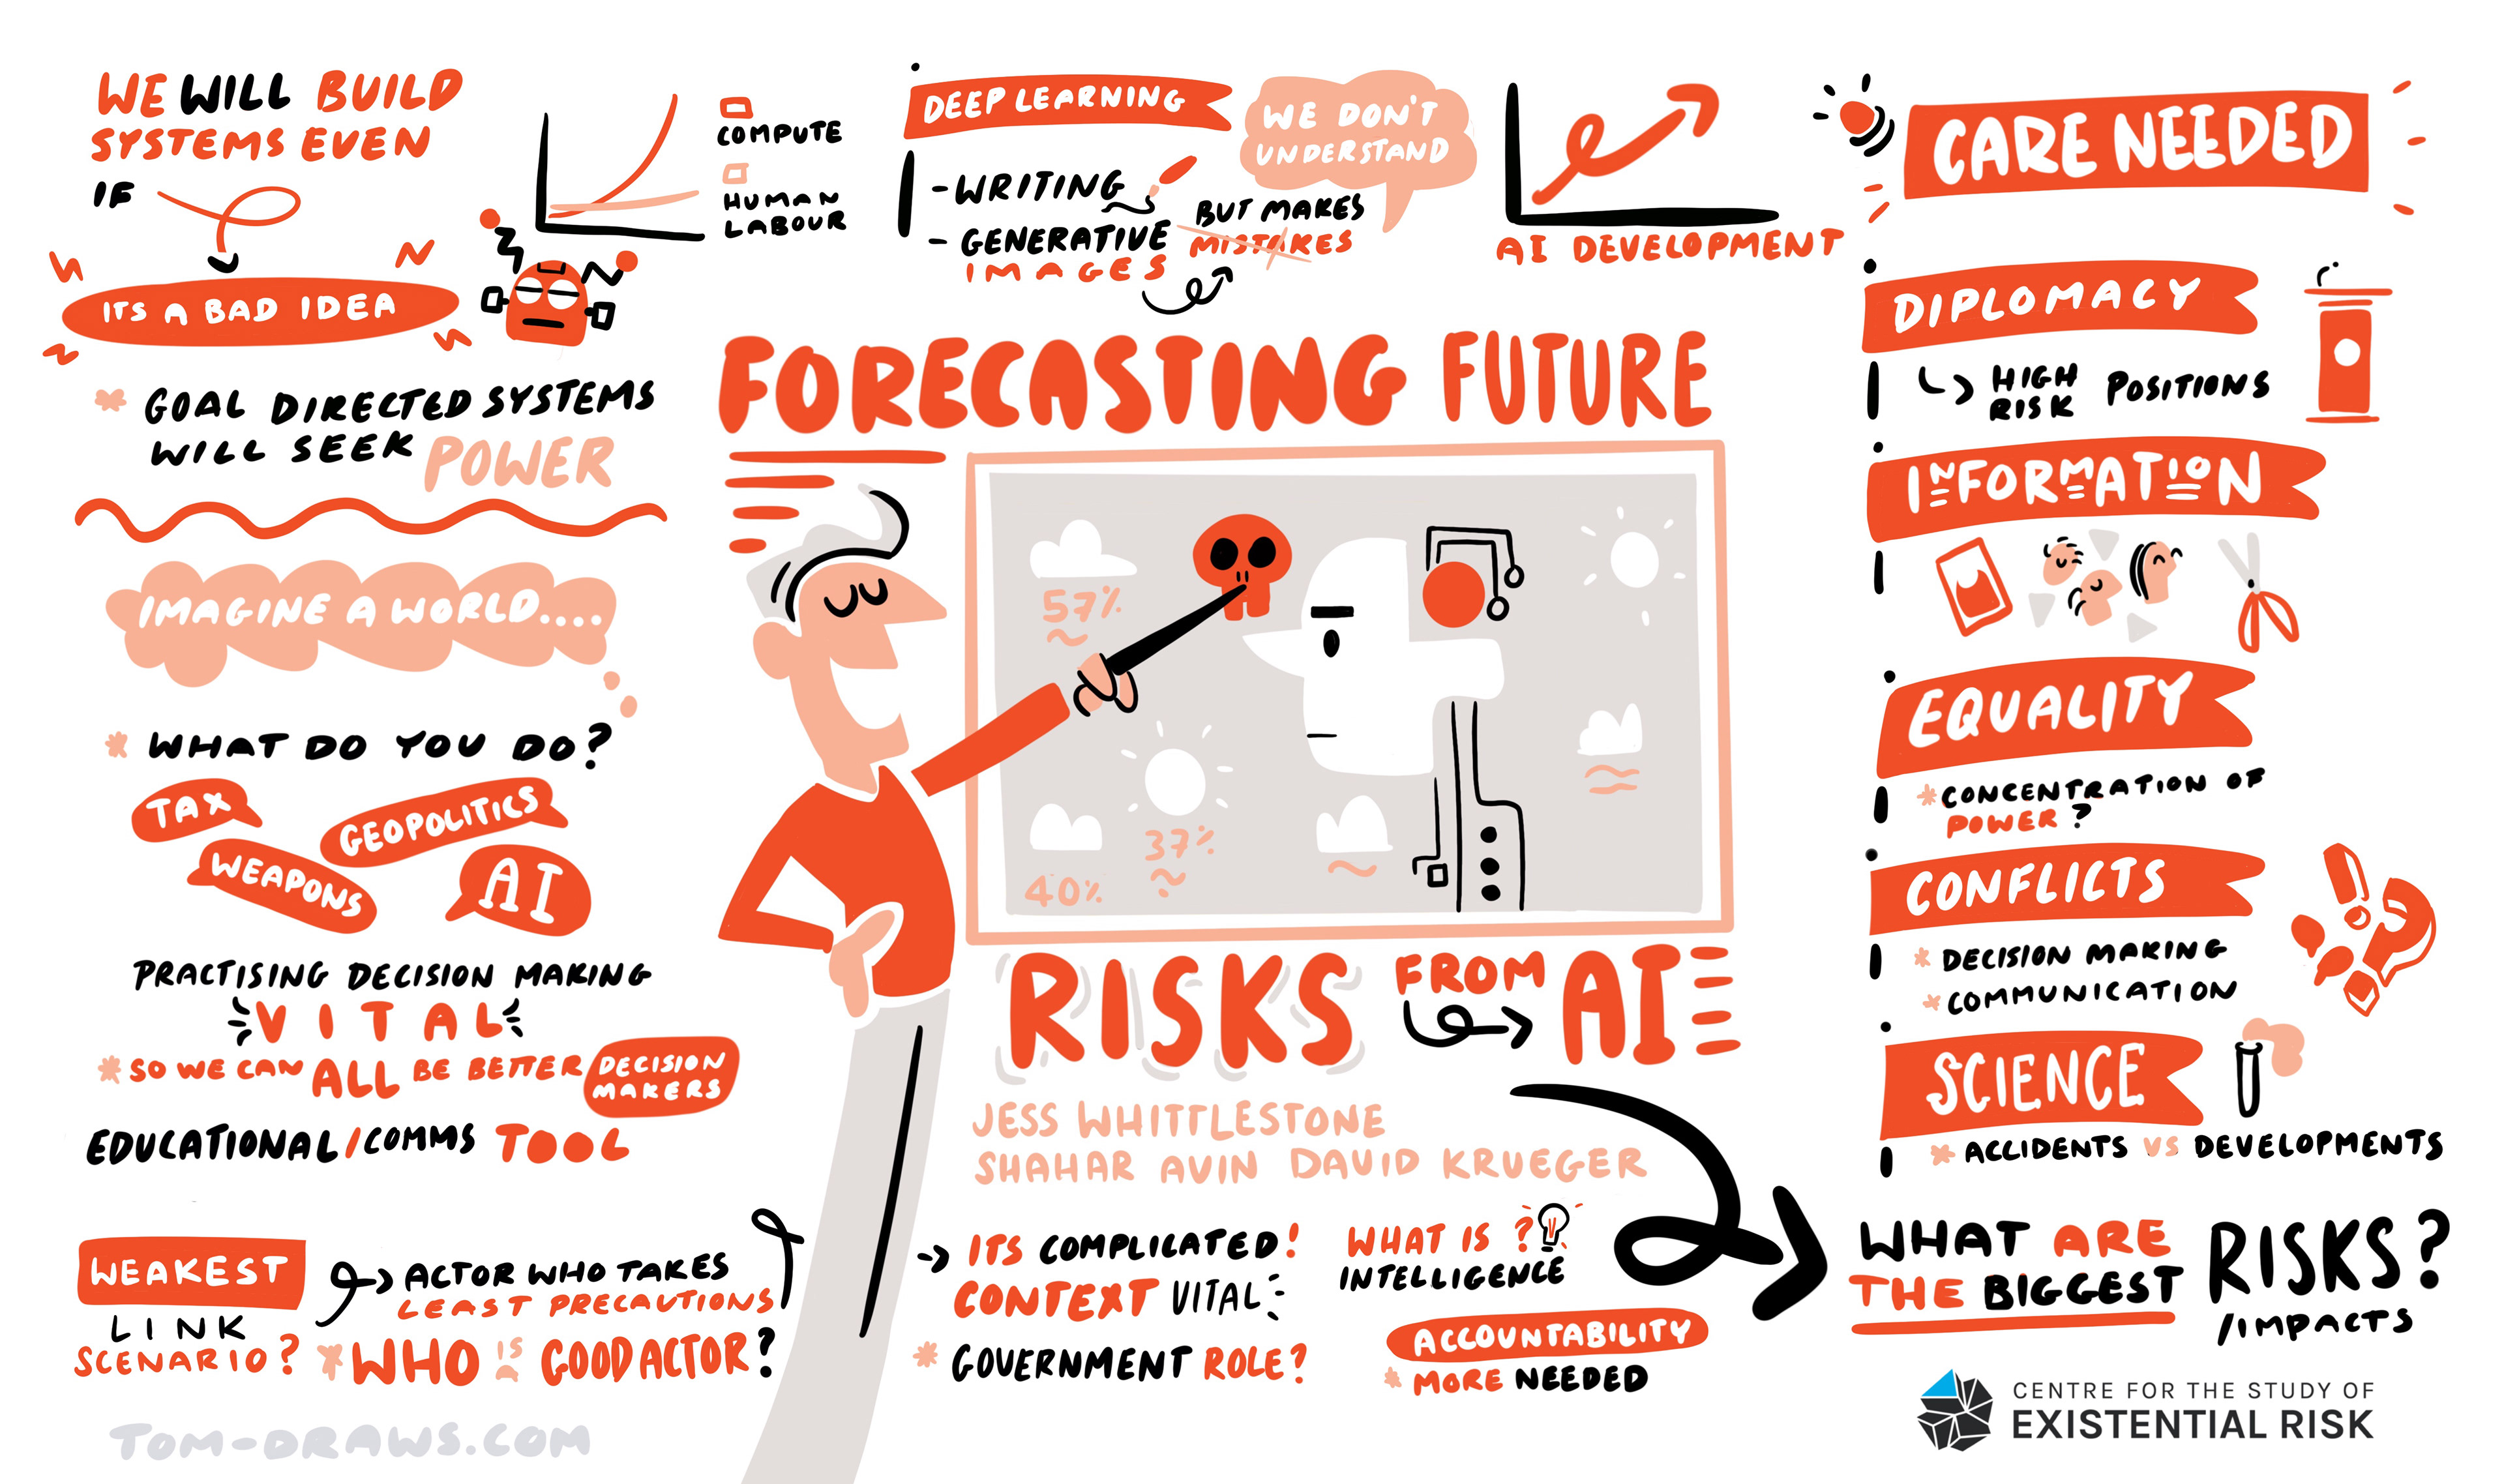 WE WILL BUILD
SYSTEMS EVEN
IF
ITS A BAD IDEA
COMPUTE
HUMAN
LABOUR
GOAL DIRECTED SYSTEMS
WILL SEEK POWER
IMAGINE A WORLD....
WHAT DO YOU DO?
TAX
GEOPOLITICS
WEAPONS
AI
PRACTISING DECISION MAKING
VITAL
SO WE CAN ALL BE BETTER DECISION
MAKERS
EDUCATIONAL/COMMS TOOL
WEAKEST
LINK
SCENARIO?
ACTOR WHO TAKES
LEAST PRECAUTIONS
WHO IS A GOOD ACTOR?
TOM-DRAWS.COM
DEEP LEARNING
- WRITING
- GENERATIVE
IMAGES
BUT MAKES
MISTAKES
WE DON'T
UNDERSTAND
AI DEVELOPMENT
FORECASTING FUTURE
57%
37%
40%
RISKS FROM AI
JESS WHITTLESTONE
SHAHAR AVIN DAVID KRUEGER
ITS COMPLICATED!
CONTEXT VITAL
GOVERNMENT ROLE?
WHAT IS ?
INTELLIGENCE
ACCOUNTABILITY
MORE NEEDED
CARE NEEDED
DIPLOMACY
HIGH
RISK POSITIONS
INFORMATION
EQUALITY
CONCENTRATION OF
POWER?
CONFLICTS
DECISION MAKING
COMMUNICATION
SCIENCE
ACCIDENTS VS DEVELOPMENTS
WHAT ARE
THE BIGGEST RISKS?
/IMPACTS
CENTRE FOR THE STUDY OF
EXISTENTIAL RISK